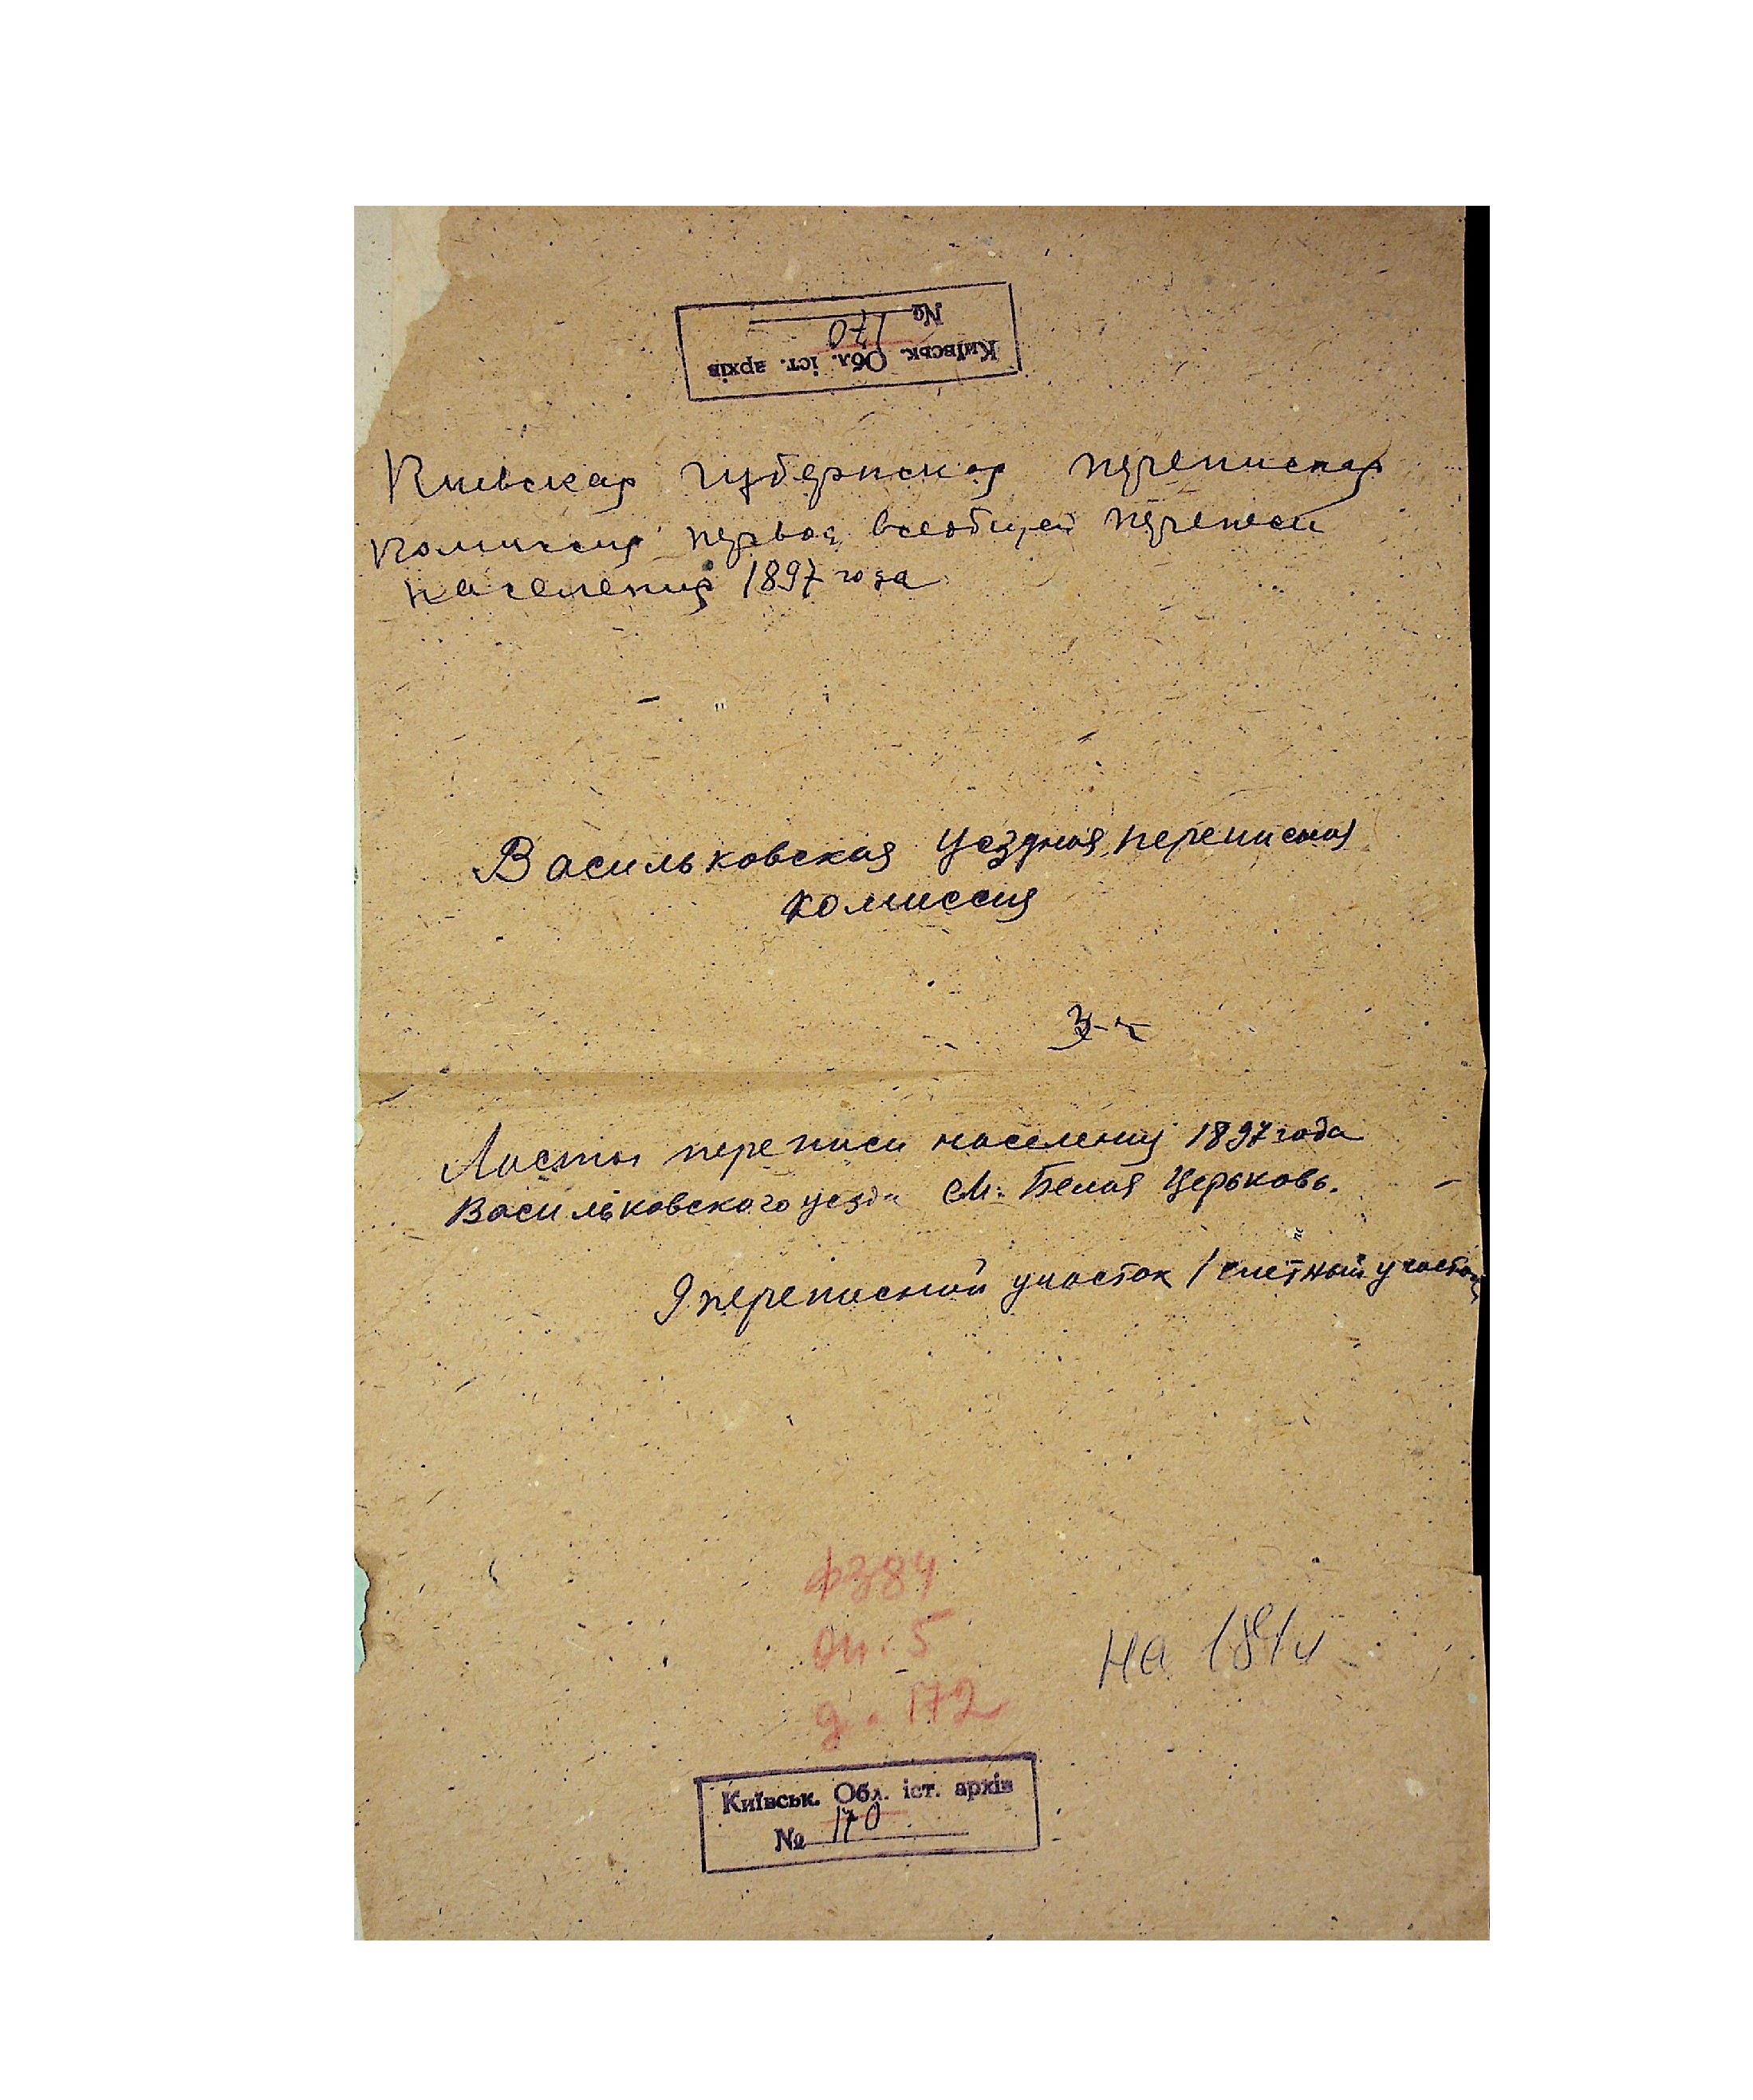 Київськ. Обл. іст. архів
№ 170
Киевская губернская переписная
комиссия первой всеобщей переписи
населения 1897 года
Васильковская уездная переписная
комиссия
Листы переписи населения 1897 года
Васильковского уезда м. Белая Церьковь.
9 переписной участок 1 счетный участок
ф384
оп. 5
д. 172
на 181 л
Київськ. Обл. іст. архів
№ 170